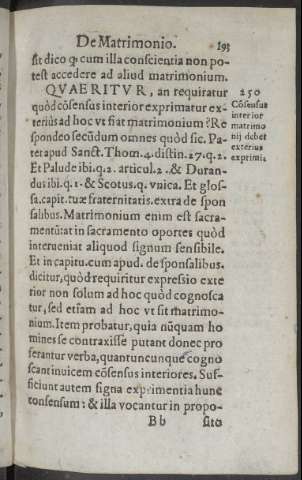 De Matrimonio. 193
sit dico q; cum illa conscientia non po-
test accedere ad aliud matrimonium.
QVAERITVR, an requiratur
quòd cõsensus interior exprimatur ex-
teriùs ad hoc vt fiat matrimonium? Re
spondeo secũdum omnes quòd sic. Pa-
ter apud Sanct. Thom. 4. distin. 27. q. 2.
Et Palude ibi. q. 2. articul. 2. & Duran-
dus ibi. q. 1. & Scotus. q. vnica. Et glos-
sa. capit. tuæ fraternitatis. extra de spon
salibus. Matrimonium enim est sacra-
mentũ: at in sacramento oportet quòd
interueniat aliquod signum sensibile.
Et in capitu. cum apud. de sponsalibus.
dicitur, quòd requiritur expressio exte
rior non solum ad hoc quòd cognosca
tur, sed etiam ad hoc vt sit matrimo-
nium. Item probatur, quia nũquam ho
mines se contraxisse putant donec pro
ferantur verba, quantuncunque cogno
scant inuicem cõsensus interiores. Suf-
ficiunt autem signa exprimentia hunc
consensum: & illa vocantur in propo-
Bb sito
250
Cõsensus
interior
matrimo
nij debet
exterius
exprimi.